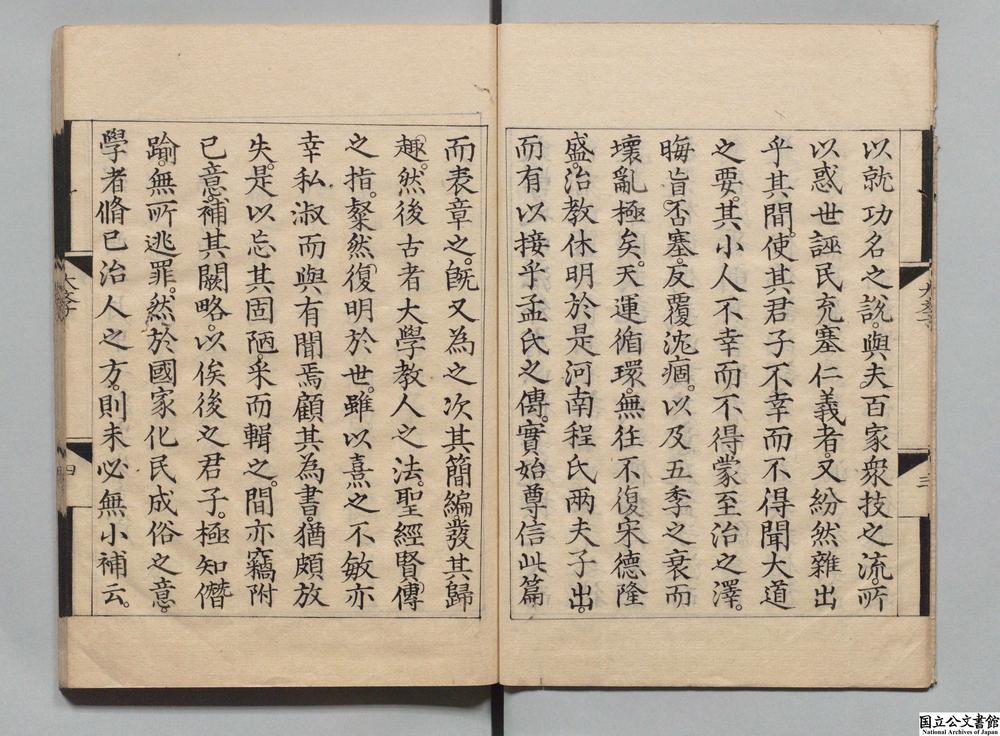 以就功名之說。與夫百家衆技之流。所
以惑世誣民充塞仁義者。又紛然雜出
乎其間。使其君子不幸而不得聞大道
之要。其小人不幸而不得蒙至治之澤。
晦盲否塞。反覆沈痼。以及五季之衰而
壞亂極矣。天運循環。無往不復宋德隆
盛。治教休明於是河南程氏兩夫子出。
而有以接乎孟氏之傳。實始尊信此篇
而表章之。旣又為之次其簡編發其歸
趣。然後古者大學教人之法。聖經賢傳
之指。粲然復明於世。雖以熹之不敏亦
幸私淑而與有聞焉顧其為書。猶頗放
失。是以忘其固陋。采而輯之。間亦竊附
己意。補其闕略。以俟後之君子。極知僭
踰。無所逃罪。然於國家化民成俗之意。
學者脩己治人之方。則未必無小補云。
三
四
国立公文書館
National Archives of Japan